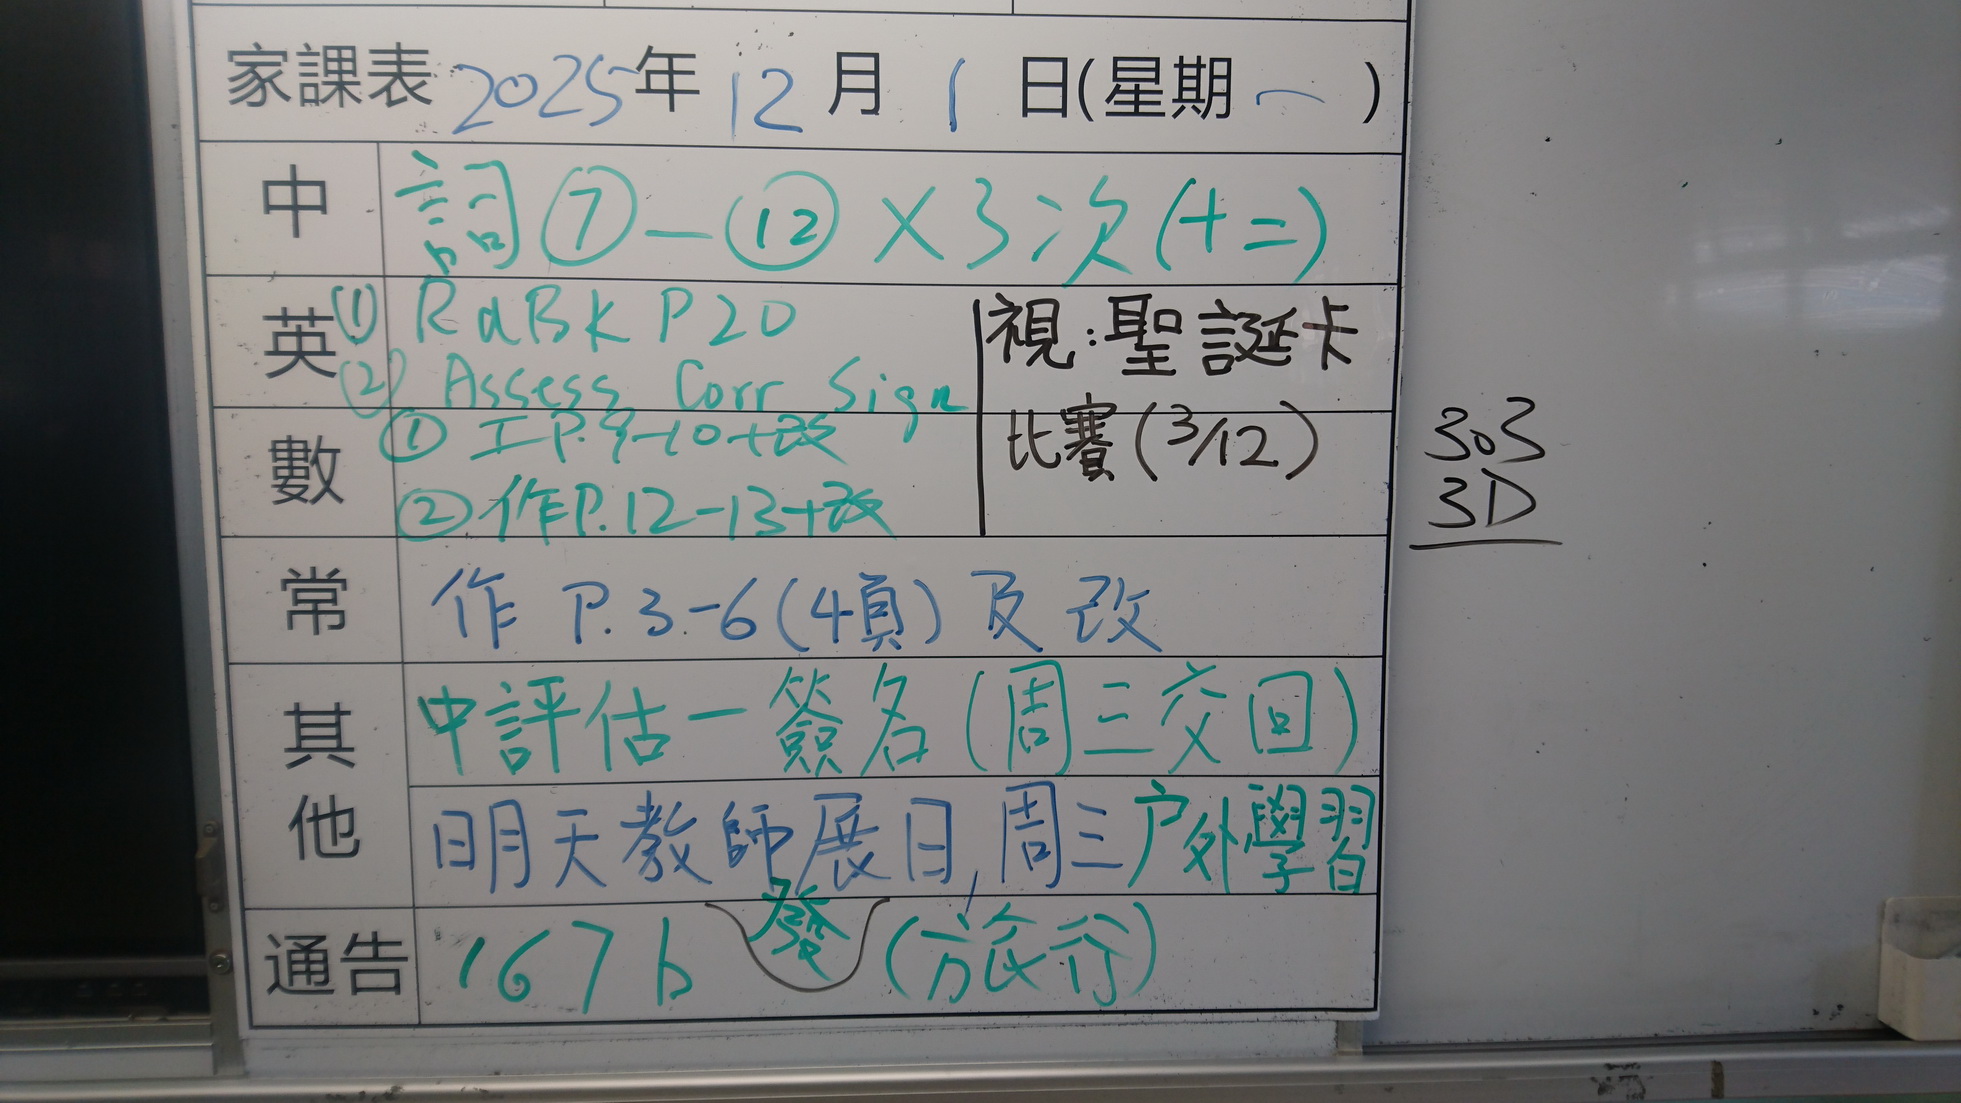 家課表 2025年 12月 1日(星期一)
中 詞⑦—⑫×3次(十二)
英 (1) RdBk P20
(2) Assess Corr Sign
視:聖誕卡
比賽(3/12)
數 ① 工P.9-10+改
② 作P.12-13+改
常 作 P.3-6(4頁)及改
其他 中評估—簽名(周三交回)
明天教師展日,周三户外學習
通告 167b 發 (旅行)
303
3D